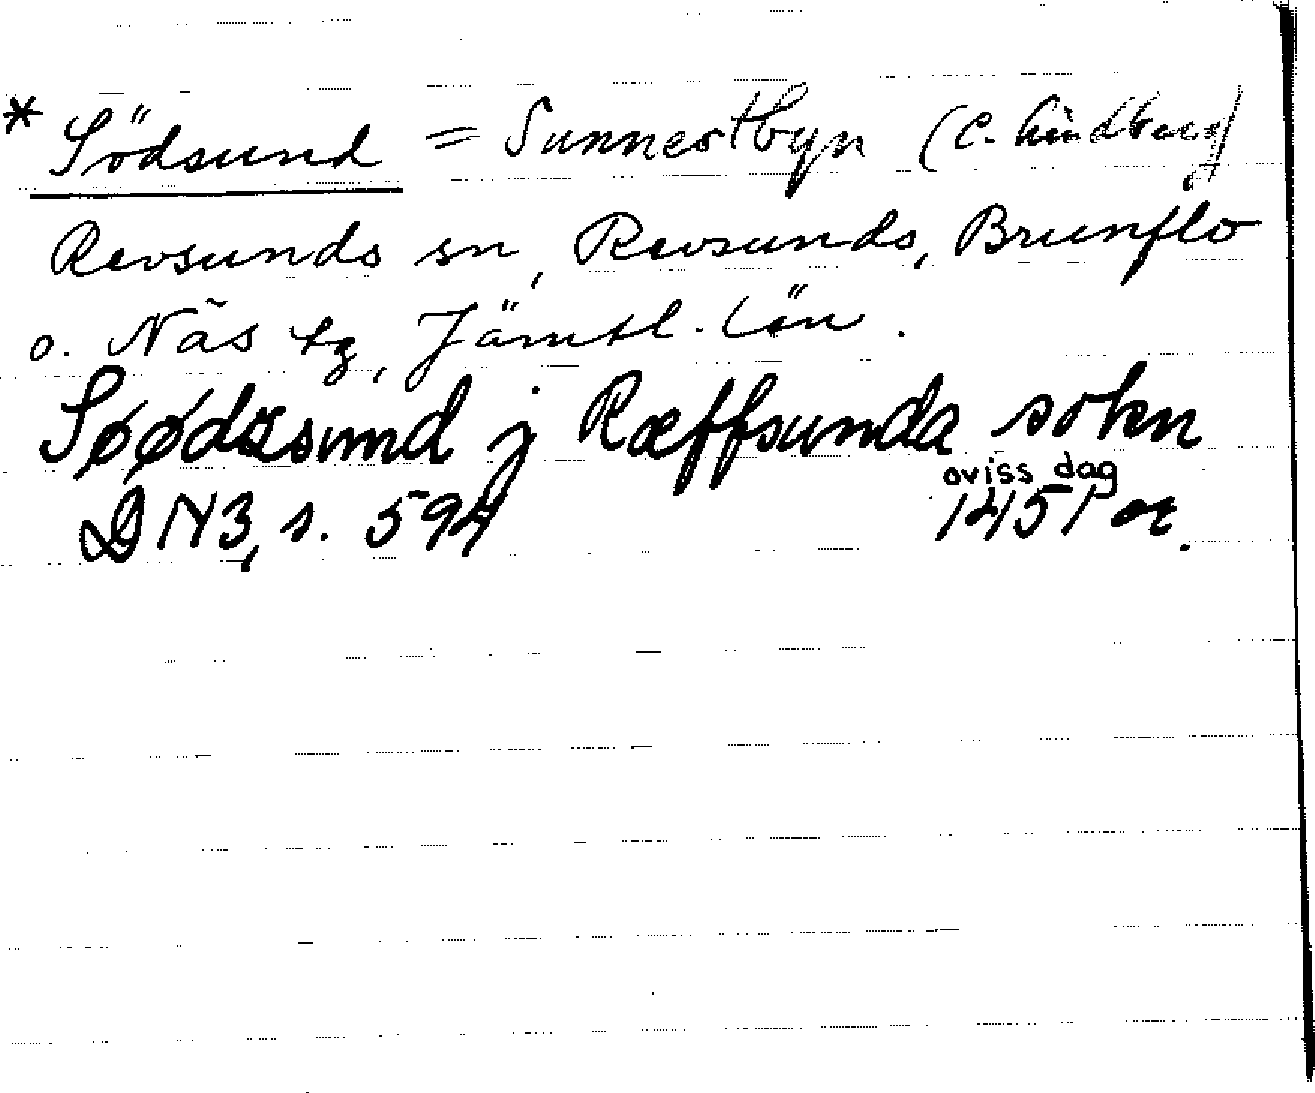 * Södsund = Sunnerstbyn (C. Lindberg)
Revsunds sn, Revsunds, Brunflo
o. Näs tg, Jämtl. län.
Søødzsund j Ræffsunda sokn
oviss dag
DN 3, s. 594 1451 or.